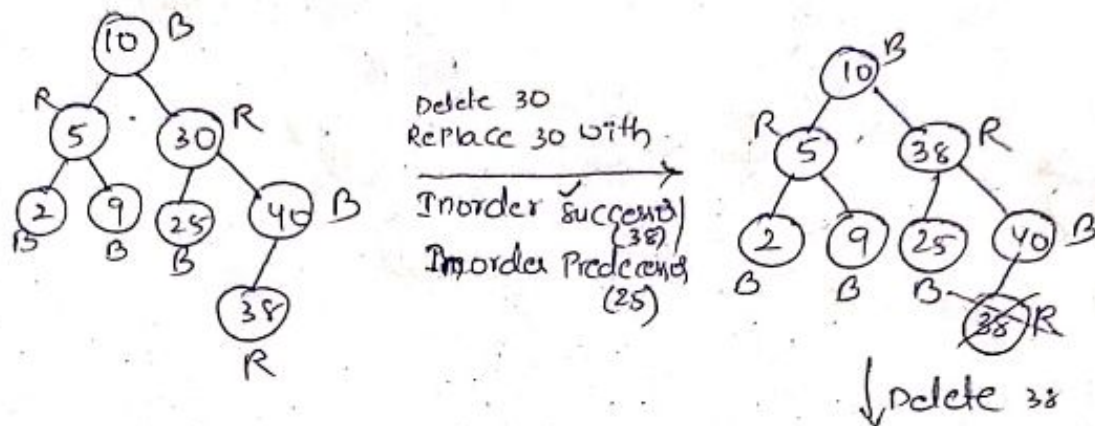 10 B
R 5 30 R
2 9 25 40 B
B B B
38
R
Delete 30
Replace 30 with
Inorder Successor/
(38)
Inorder Predecessor
(25)
10 B
R 5 38 R
2 9 25 40 B
B B B
38 R
Delete 38